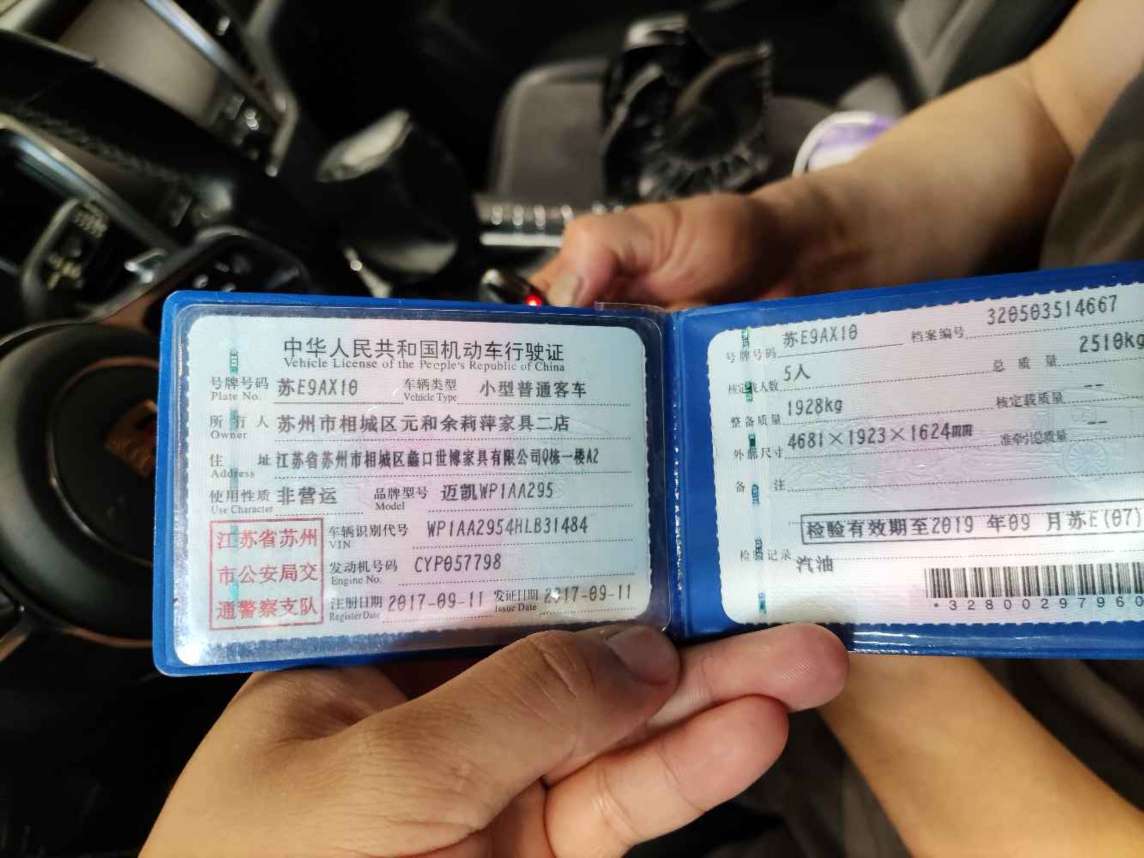 中华人民共和国机动车行驶证
Vehicle License of the People's Republic of China
号牌号码 苏E9AX10 车辆类型 小型普通客车
Plate No. Vehicle Type
所有人 苏州市相城区元和余莉萍家具二店
Owner
住址 江苏省苏州市相城区蠡口世博家具有限公司Q栋一楼A2
Address
使用性质 非营运 品牌型号 迈凯WP1AA295
Use Character Model
江苏省苏州
市公安局交
通警察支队
车辆识别代号 WP1AA2954HLB31484
VIN
发动机号码 CYP057798
Engine No.
注册日期 2017-09-11 发证日期 2017-09-11
Register Date Issue Date
号牌号码 苏E9AX10 档案编号 320503514667
核定载人数 5人 总质量 2510kg
整备质量 1928kg 核定载质量 --
外廓尺寸 4681×1923×1624mm 准牵引总质量 --
备注
检验有效期至2019 年09 月苏E(07)
检验记录 汽油
*32800297960